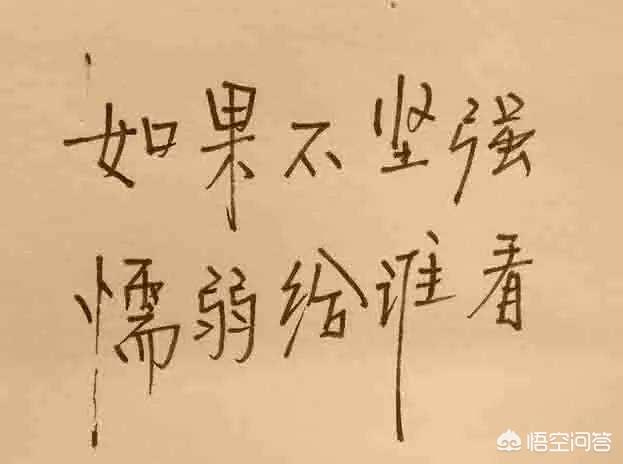 如果不坚强
懦弱给谁看
悟空问答